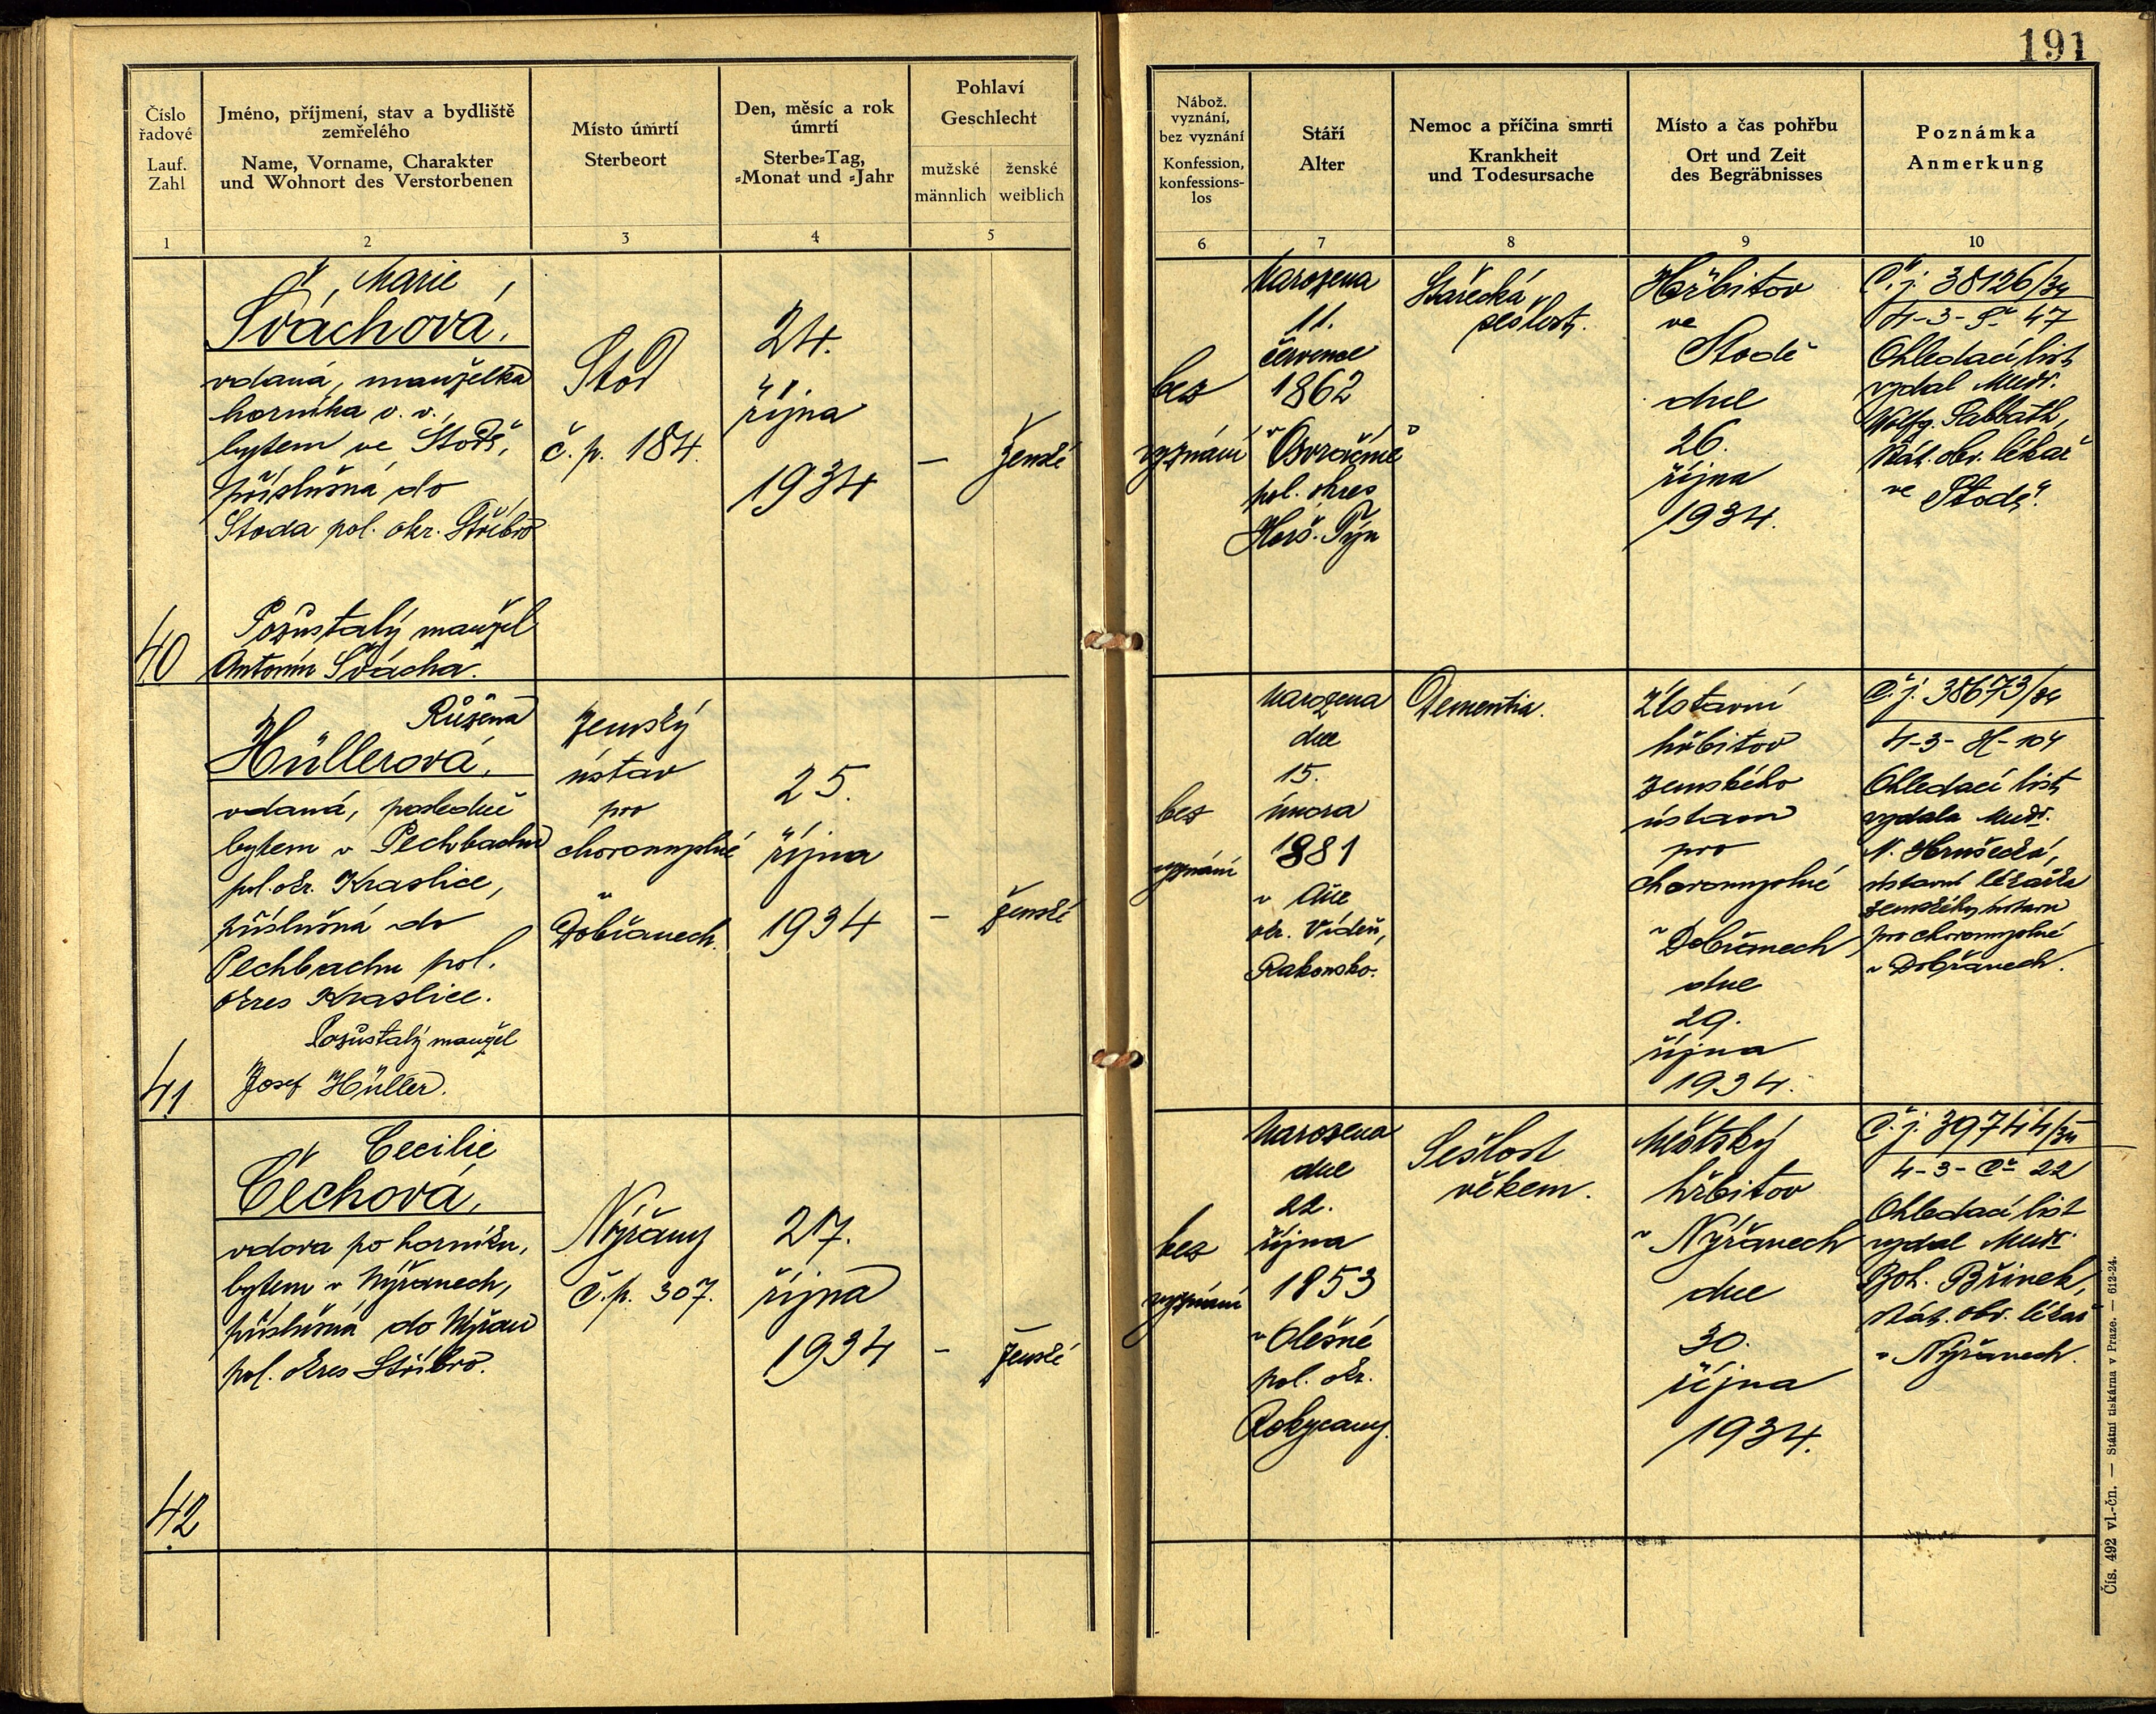 191
Číslo
řadové
Lauf.
Zahl
1
Jméno, příjmení, stav a bydliště
zemřelého
Name, Vorname, Charakter
und Wohnort des Verstorbenen
2
Místo úmrtí
Sterbeort
3
Den, měsíc a rok
úmrtí
Sterbe-Tag,
-Monat und -Jahr
4
Pohlaví
Geschlecht
mužské
männlich
ženské
weiblich
5
Nábož.
vyznání,
bez vyznání
Konfession,
konfessions-
los
6
Stáří
Alter
7
Nemoc a příčina smrti
Krankheit
und Todesursache
8
Místo a čas pohřbu
Ort und Zeit
des Begräbnisses
9
Poznámka
Anmerkung
10
40
Marie
Šváchová,
vdaná, manželka
horníka v. v.,
bytem ve Stodě,
příslušná do
Stoda pol. okr. Stříbro
Pozůstalý manžel
Antonín Švácha.
Stod
č. p. 184.
24.
října
1934
–
ženské
bez
vyznání
Narozena
11.
července
1862
v
pol. okres
Horš. Týn
Stařecká
sešlost.
Hřbitov
ve
Stodě
dne
26.
října
1934.
Č. j. 38126/34
4-3-Š- 47
Ohledací list
vydal Mudr.
Wolfg. Sabbath,
stát. obv. lékař
ve Stodě.
41
Růžena
Hüllerová,
vdaná, posledně
bytem v Pechbachu
pol. okr. Kraslice,
příslušná do
Pechbachu pol.
okres Kraslice.
Pozůstalý manžel
Josef Hüller.
Zemský
ústav
pro
choromyslné
v
Dobřanech.
25.
října
1934
–
ženské
bez
vyznání
Narozena
dne
15.
února
1881
v
okr. Vídeň,
Rakousko.
Dementia.
Ústavní
hřbitov
zemského
ústavu
pro
choromyslné
v Dobřanech
dne
29.
října
1934.
Č. j. 38673/34
4-3-H-104
Ohledací list
vydala Mudr.
N. Hrušecká,
ústavní lékařka
zemského ústavu
pro choromyslné
v Dobřanech.
42
Cecilie
Čechová,
vdova po horníku,
bytem v Nýřanech,
příslušná do Nýřan
pol. okres Stříbro.
Nýřany
č. p. 307.
27.
října
1934
–
ženské
bez
vyznání
Narozena
dne
22.
října
1853
v Olešné
pol. okr.
Rokycany.
Sešlost
věkem.
Městský
hřbitov
v Nýřanech
dne
30.
října
1934.
Č. j. 39744/34
4-3-Č- 22
Ohledací list
vydal Mudr.
Boh. Břinek,
stát. obv. lékař
v Nýřanech.
Čís. 492 vl.-čn. — Státní tiskárna v Praze. — 612-24.